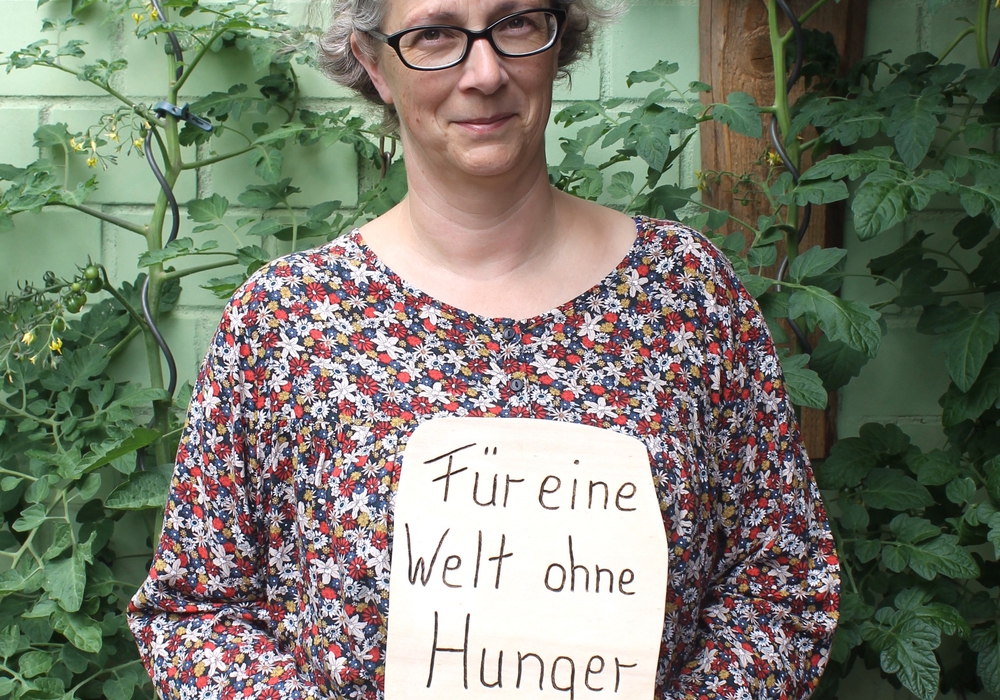 Für eine
Welt ohne
Hunger